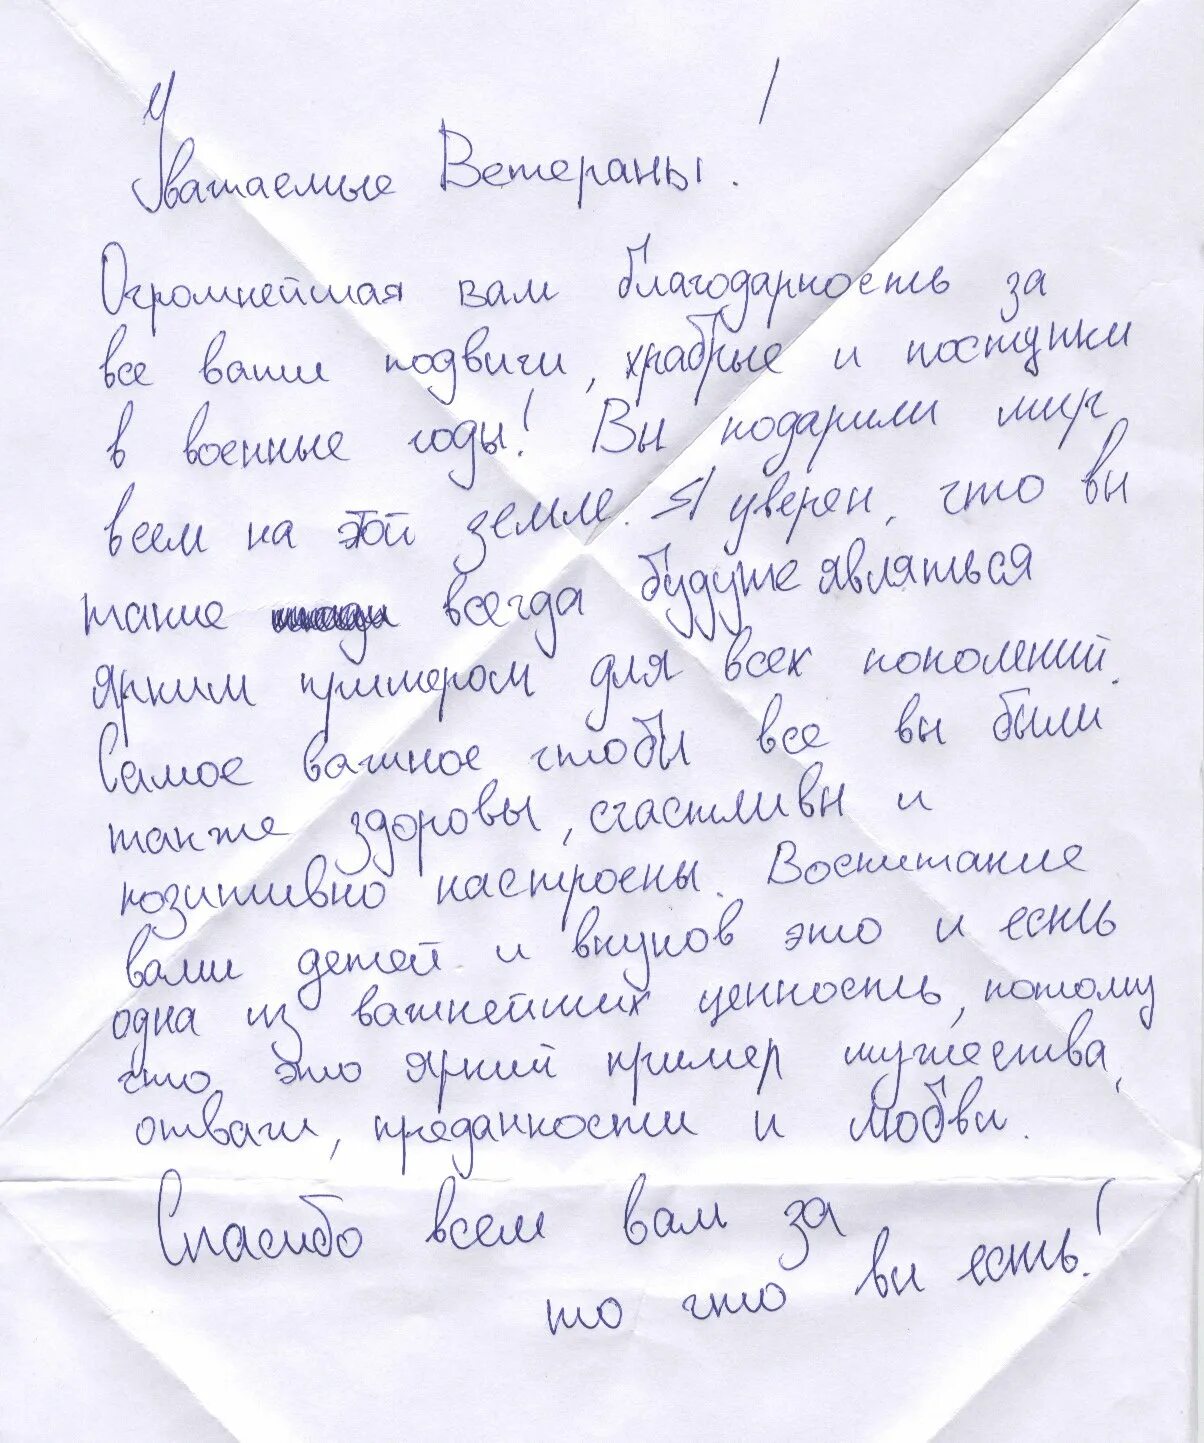 Уважаемые Ветераны!
Огромнейшая вам благодарность за
все ваши подвиги, храбрые и поступки
в военные годы! Вы подарили мир
всем на этой земле. Я уверен, что вы
такие всегда будуте являться
ярким примером для всех поколений.
Самое важное чтобы все вы были
также здоровы, счастливы и
позитивно настроены. Воспитание
вами детей и внуков это и есть
одна из важнейших ценность, потому
что это яркий пример мужества,
отваги, преданности и любви.
Спасибо всем вам за
то что вы есть!